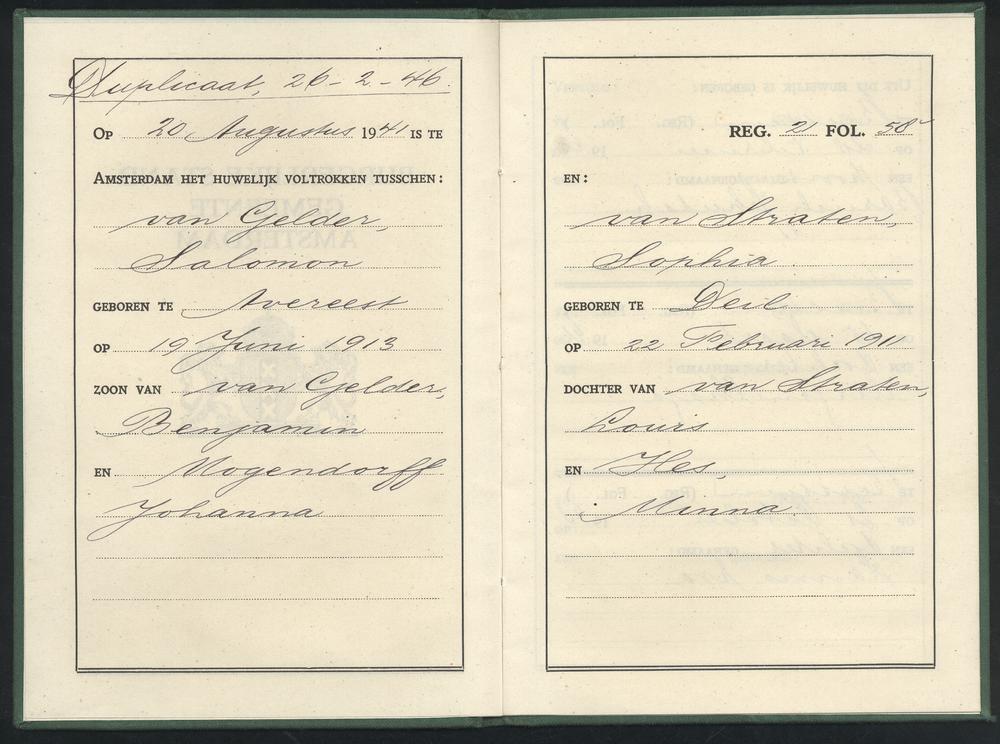 Duplicaat, 26-2-46.
Op 20 Augustus 1941 is te
Amsterdam het huwelijk voltrokken tusschen:
van Gelder,
Salomon
geboren te Avereest
op 19 Juni 1913
zoon van van Gelder,
Benjamin
en Mogendorff
Johanna
REG. 21 FOL. 58v
en:
van Straten,
Sophia
geboren te Deil
op 22 Februari 1911
dochter van van Straten,
Louis
en Hes,
Minna